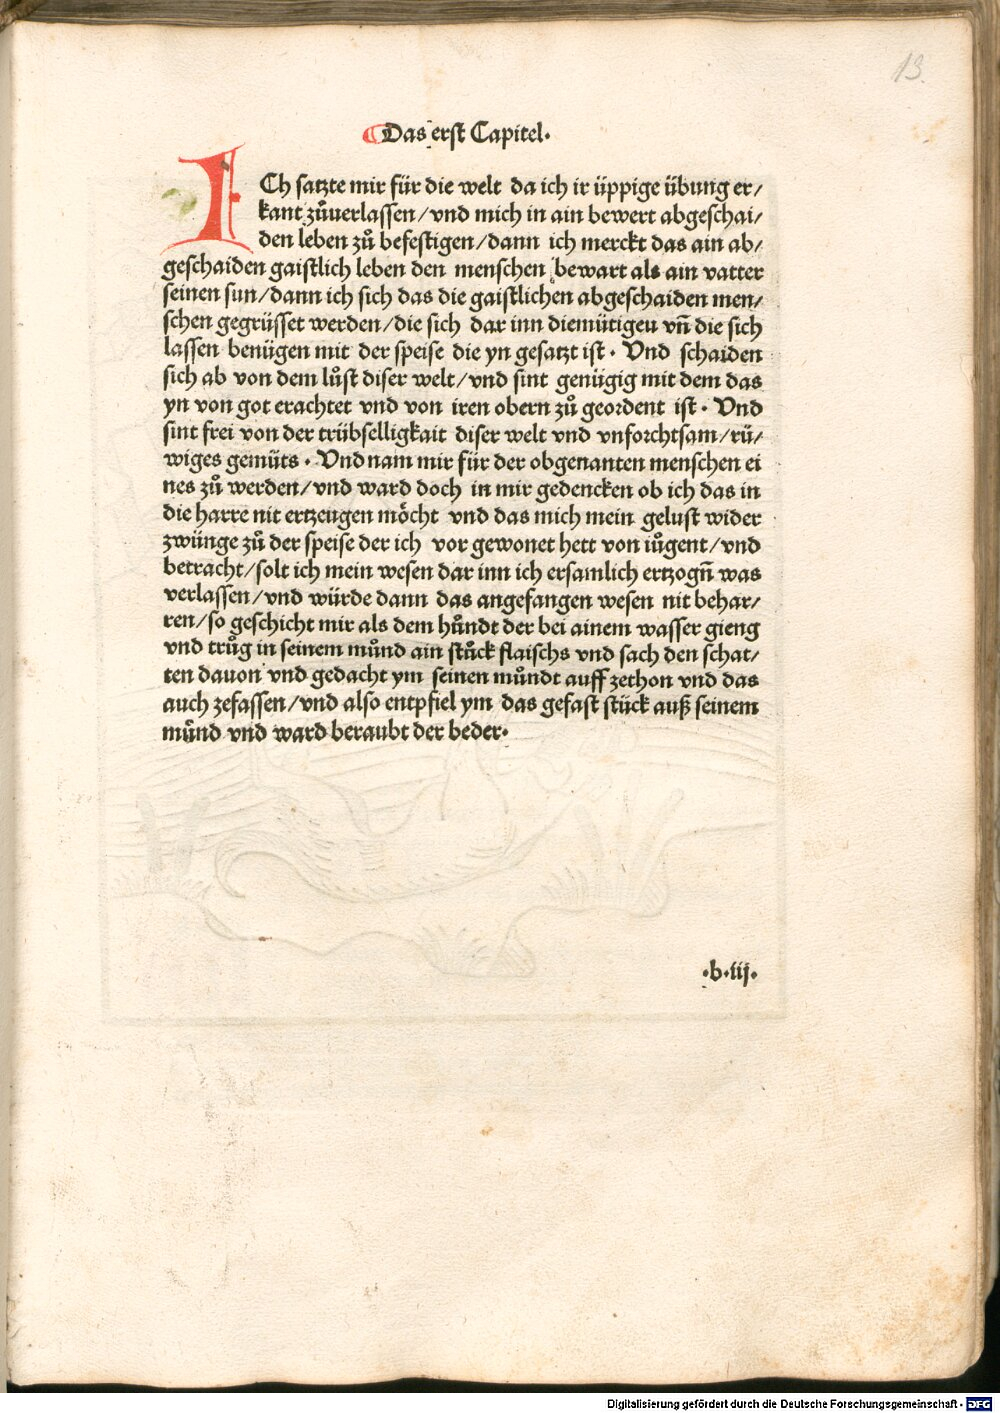 13.
Das erst Capitel·
ICh satzte mir für die welt da ich ir üppige übung er/
kant zůuerlassen/vnd mich in ain bewert abgeschai/
den leben zů befestigen/dann ich merckt das ain ab/
geschaiden gaistlich leben den menschen bewart als ain vatter
seinen sun/dann ich sich das die gaistlichen abgeschaiden men/
schen gegrüsset werden/die sich dar inn diemütigeu vñ die sich
lassen benügen mit der speise die yn gesatzt ist· Vnd schaiden
sich ab von dem lůst diser welt/vnd sint genügig mit dem das
yn von got erachtet vnd von iren obern zů geordent ist· Vnd
sint frei von der trübselligkait diser welt vnd vnforchtsam/rü/
wiges gemüts· Vnd nam mir für der obgenanten menschen ei
nes zů werden/vnd ward doch in mir gedencken ob ich das in
die harre nit ertzeugen möcht vnd das mich mein gelust wider
zwünge zů der speise der ich vor gewonet hett von iůgent/vnd
betracht/solt ich mein wesen dar inn ich ersamlich ertzogñ was
verlassen/vnd würde dann das angefangen wesen nit behar/
ren/so geschicht mir als dem hůndt der bei ainem wasser gieng
vnd trůg in seinem můnd ain stůck flaischs vnd sach den schat/
ten dauon vnd gedacht ym seinen můndt auff zethon vnd das
auch zefassen/vnd also entpfiel ym das gefast stück auß seinem
můnd vnd ward beraubt der beder·
·b·iij·
Digitalisierung gefördert durch die Deutsche Forschungsgemeinschaft - DFG